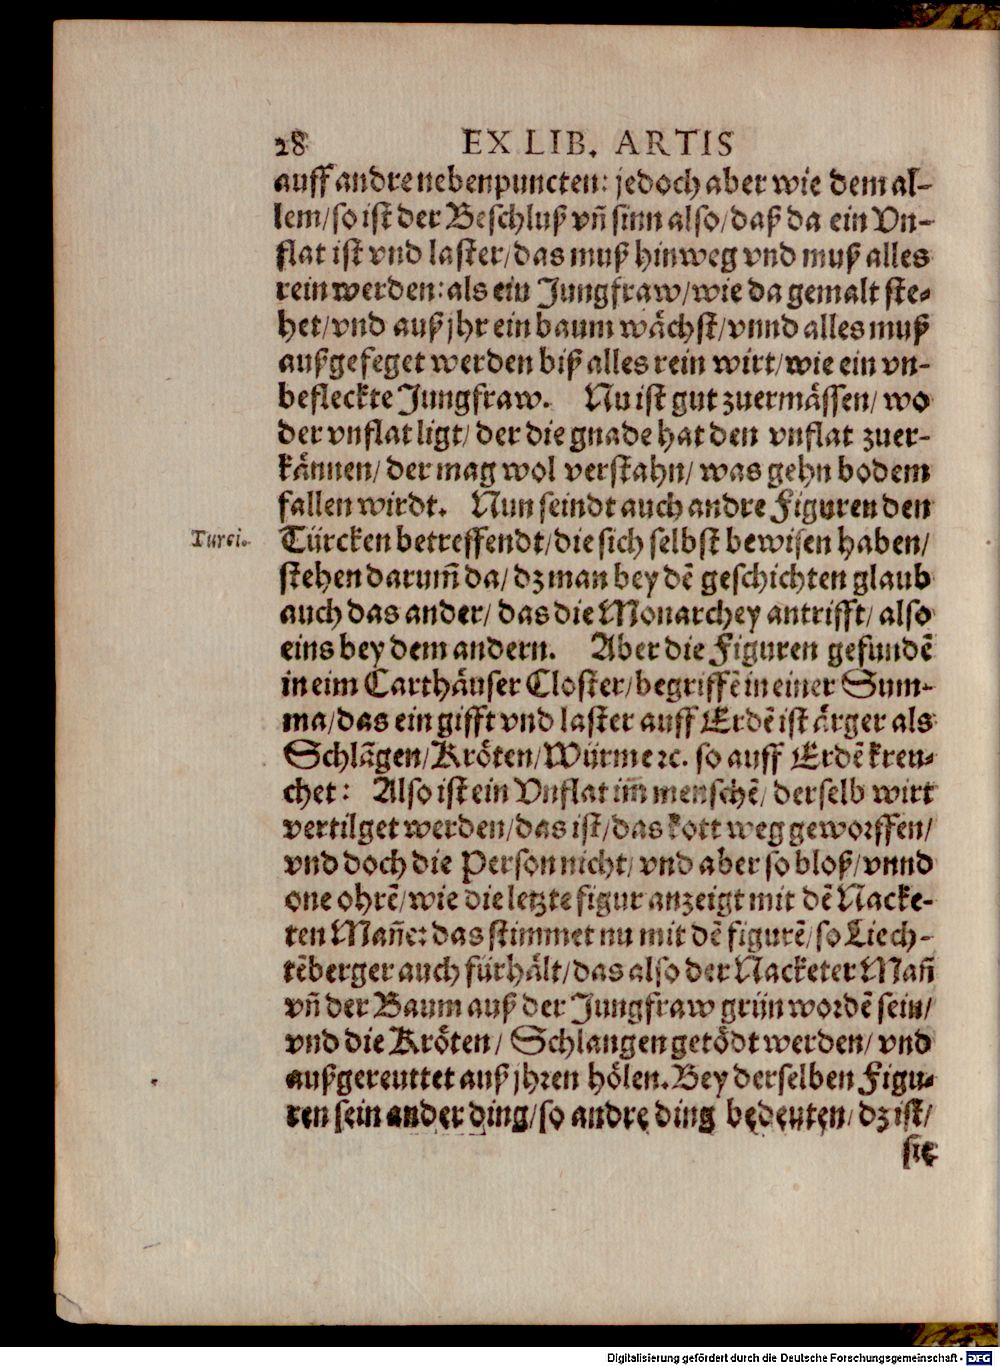 28 EX LIB. ARTIS
auff andre nebenpuncten: jedoch aber wie dem al-
lem/ so ist der Beschluß vñ sinn also/ daß da ein Vn-
flat ist vnd laster/ das muß hinweg vnd muß alles
rein werden: als ein Jungfraw/ wie da gemalt ste-
het/ vnd auß jhr ein baum wächst/ vnnd alles muß
außgefeget werden biß alles rein wirt/ wie ein vn-
befleckte Jungfraw. Nu ist gut zuermässen/ wo
der vnflat ligt/ der die gnade hat den vnflat zuer-
kännen/ der mag wol verstahn/ was gehn bodem
fallen wirdt. Nun seindt auch andre Figuren den
Turci. Türcken betreffendt/ die sich selbst bewisen haben/
stehen darum̃ da/ dz man bey dẽ geschichten glaub
auch das ander/ das die Monarchey antrifft/ also
eins bey dem andern. Aber die Figuren gefundẽ
in eim Carthäuser Closter/ begriffẽ in einer Sum-
ma/ das ein gifft vnd laster auff Erdẽ ist ärger als
Schlãgen/ Kröten/ Würme ꝛc. so auff Erdẽ kreu-
chet: Also ist ein Vnflat im̃ menschẽ/ derselb wirt
vertilget werden/ das ist/ das kott weg geworffen/
vnd doch die Person nicht/ vnd aber so bloß/ vnnd
one ohrẽ/ wie die letzte figur anzeigt mit dẽ Nacke-
ten Mañe: das stimmet nu mit dẽ figurẽ/ so Liech-
tẽberger auch fürhält/ das also der Nacketer Mañ
vñ der Baum auß der Jungfraw grün wordẽ sein/
vnd die Kröten/ Schlangen getödt werden/ vnd
außgereuttet auß jhren hölen. Bey derselben Figu-
ren sein ander ding/ so andre ding bedeuten/ dz ist/
sie
Digitalisierung gefördert durch die Deutsche Forschungsgemeinschaft - DFG